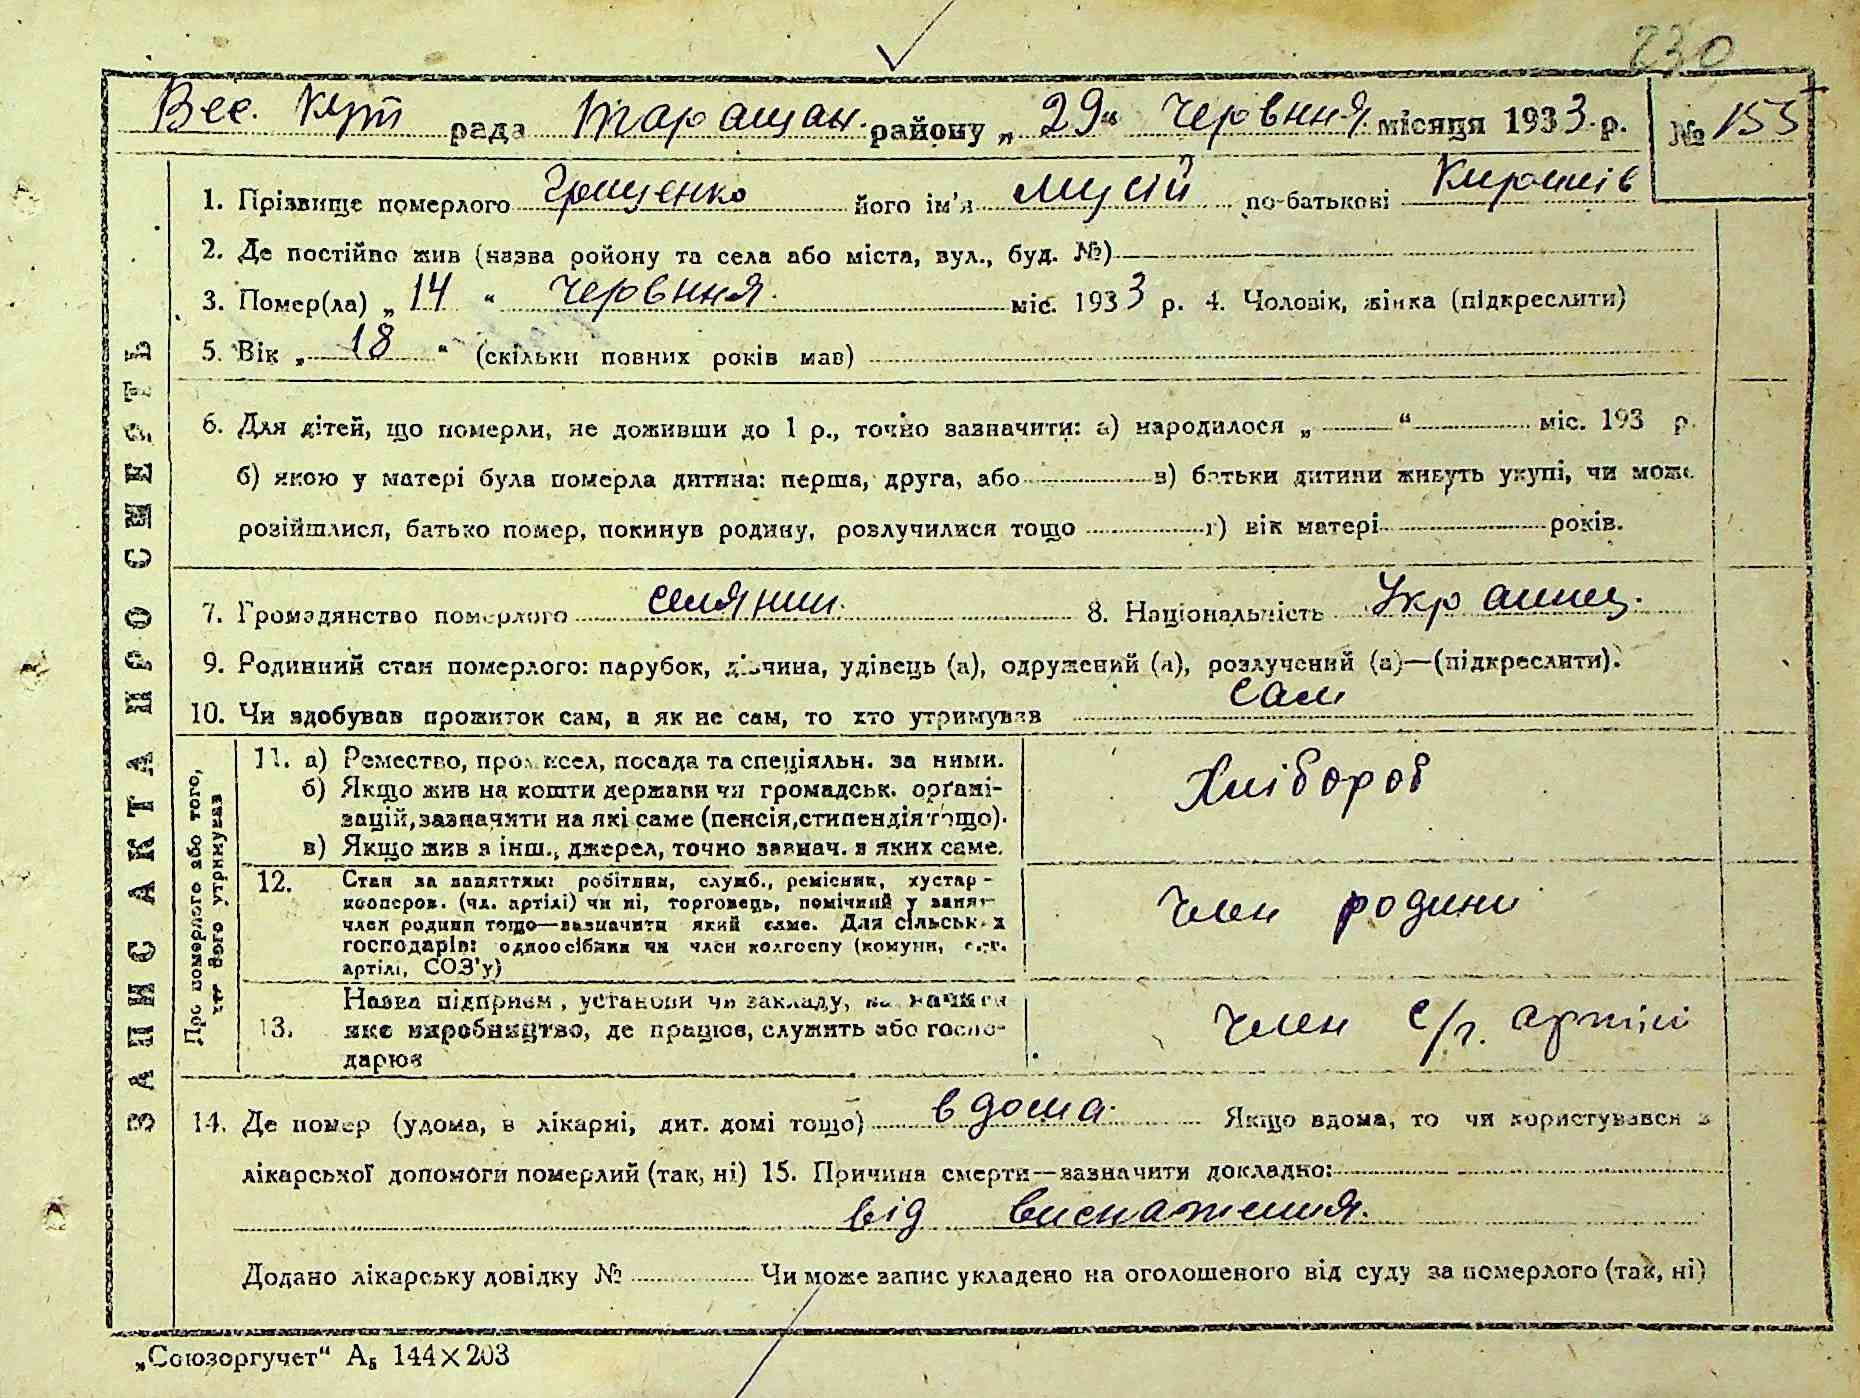 230
Вес. Кут рада Таращан. району „29“ червння місяця 1933 р. № 155
1. Прізвище померлого Грищенко його ім'я Мусій по-батькові
2. Де постійно жив (назва ройону та села або міста, вул., буд. №)
3. Помер(ла) „14“ червння міс. 1933 р. 4. Чоловік, жінка (підкреслити)
5. Вік „18“ (скільки повних років мав)
6. Для дітей, що померли, не доживши до 1 р., точно зазначити: а) народилося „ “ міс. 193 р.
б) якою у матері була померла дитина: перша, друга, або в) батьки дитини живуть укупі, чи може
розійшлися, батько помер, покинув родину, розлучилися тощо г) вік матері років.
7. Громадянство померлого селянин. 8. Національність Українец.
9. Родинний стан померлого: парубок, дівчина, удівець (а), одружений (а), розлучений (а)—(підкреслити).
10. Чи здобував прожиток сам, а як не сам, то хто утримував сам
11. а) Ремество, промисел, посада та спеціяльн. за ними.
б) Якщо жив на кошти держави чи громадськ. орґані-
зацій, зазначити на які саме (пенсія, стипендія тощо).
в) Якщо жив з інш., джерел, точно зазнач. з яких саме.
Хлібороб
12. Стан за заняттям: робітник, служб., ремісник, кустар-
кооперов. (чл. артілі) чи ні, торговець, помічний у занят-
член родини тощо—вазначити який саме. Для сільських
господарів: одноосібник чи член колгоспу (комуни, с.-г.
артілі, СОЗ'у)
Член родини
13. Назва підприєм., установи чи закладу,
яке виробництво, де працює, служить або госпо-
дарює
Член с/г. артілі
14. Де помер (удома, в лікарні, дит. домі тощо) вдома. Якщо вдома, то чи користувався з
лікарської допомоги померлий (так, ні) 15. Причина смерти—зазначити докладно:
від виснаження.
Додано лікарську довідку № Чи може запис укладено на оголошеного від суду за померлого (так, ні)
ЗАПИС АКТА ПРО СМЕРТЬ
Про померлого або того,
хто його утримував
„Союзоргучет“ А₅ 144×203